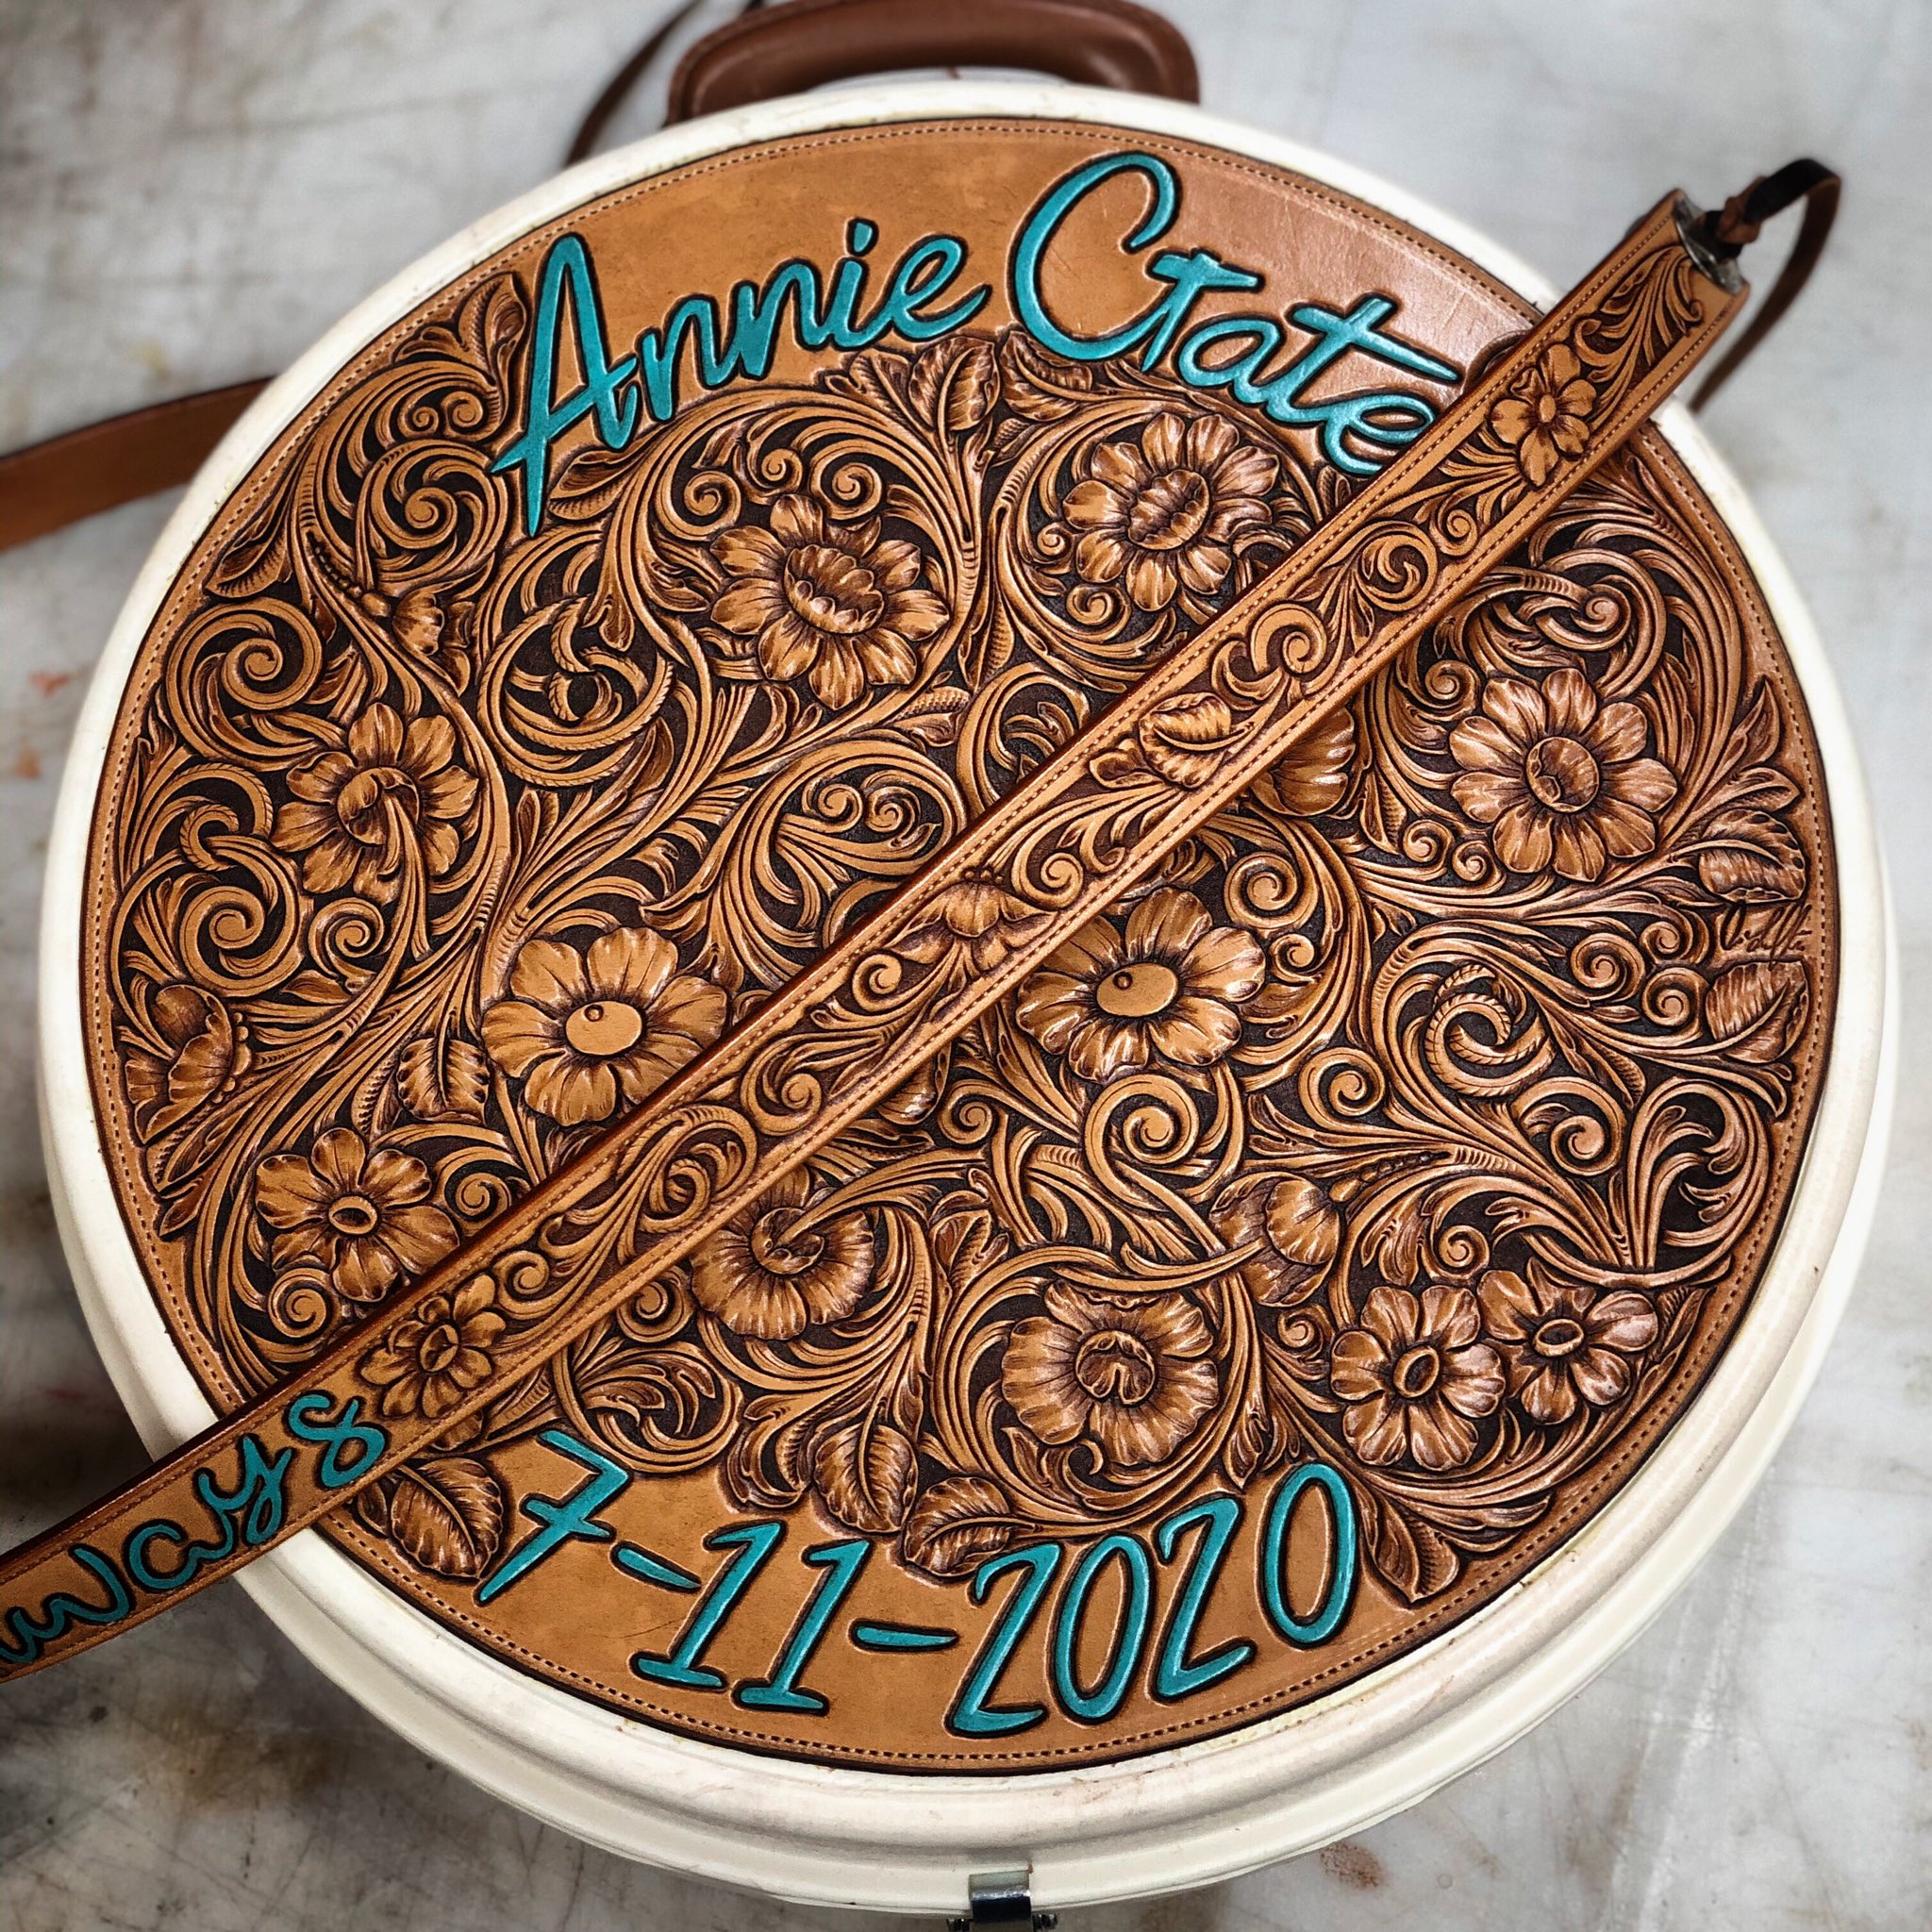 Annie Gate
ways
7-11-2020